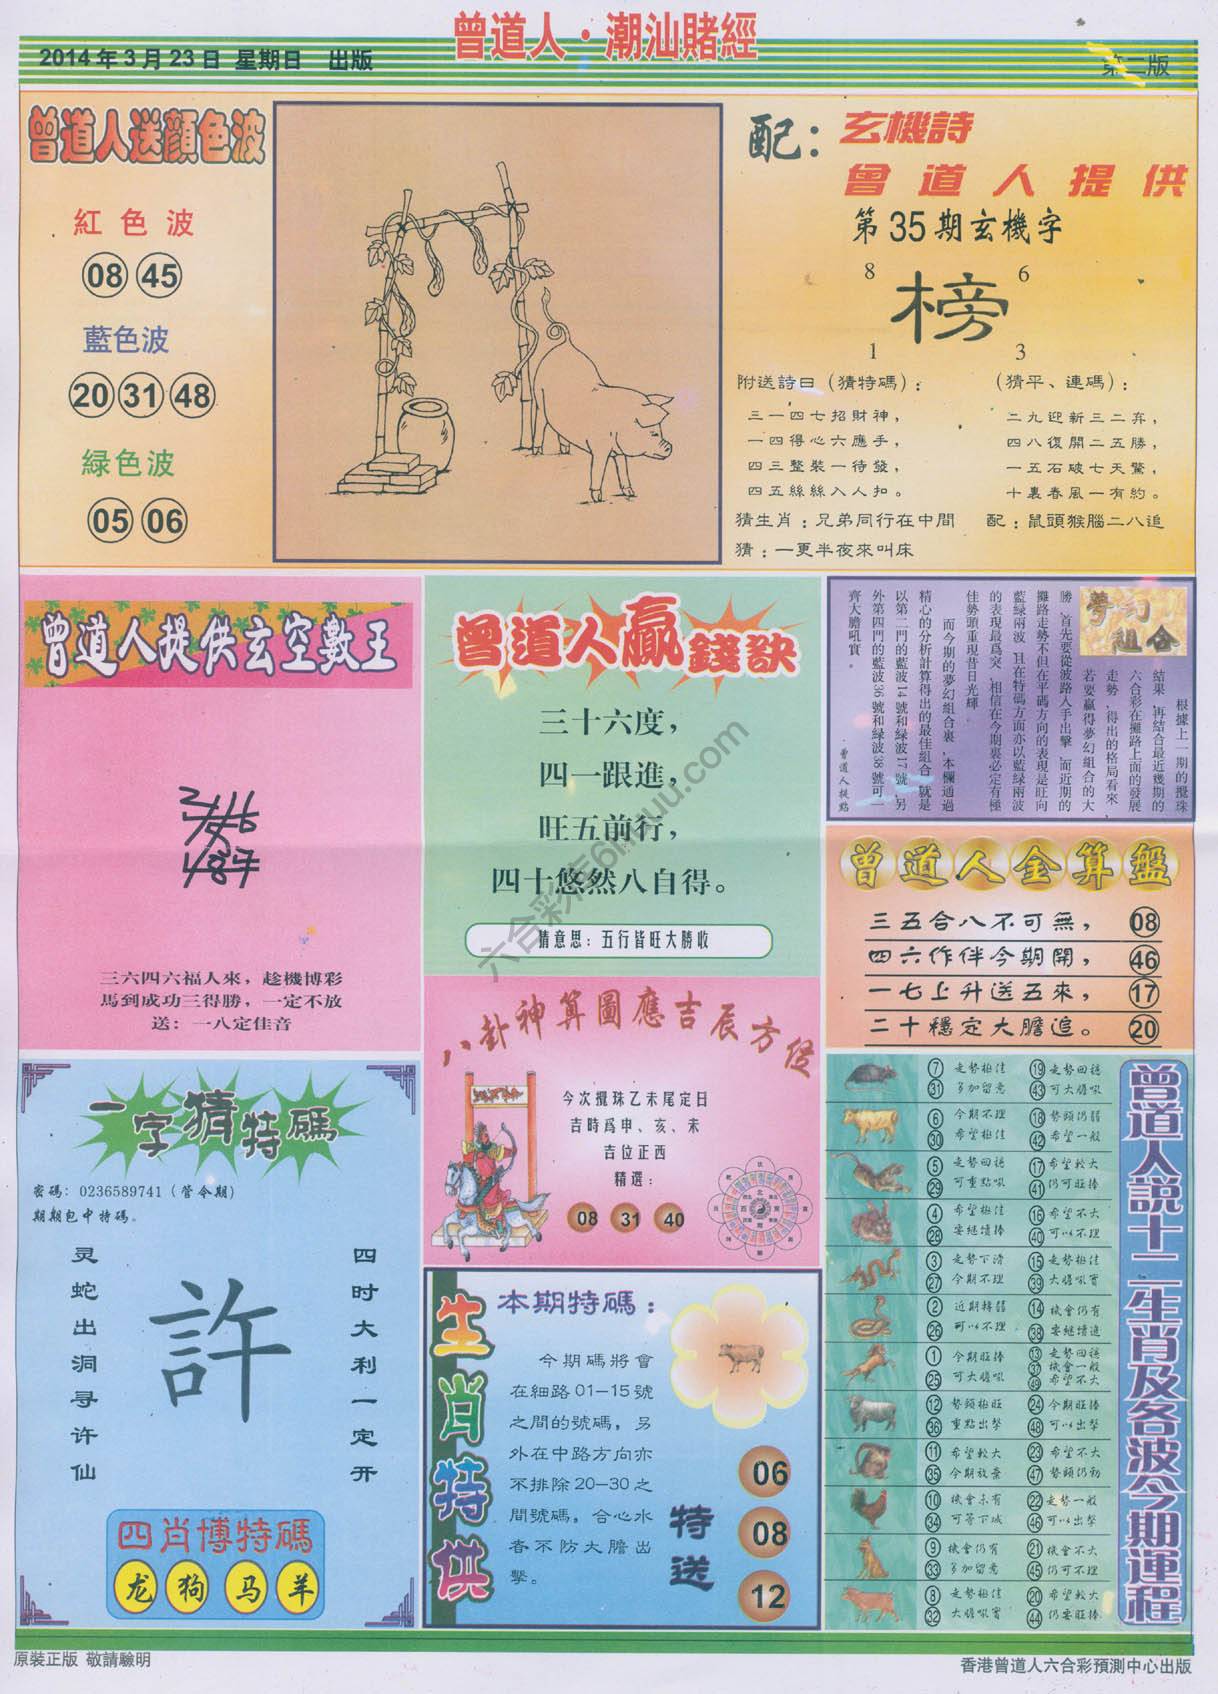 2014年3月23日 星期日 出版
曾道人·潮汕賭經
第二版
曾道人送顔色波
紅色波
08 45
藍色波
20 31 48
緑色波
05 06
配：玄機詩
曾道人提供
第35期玄機字
8 6
榜
1 3
附送詩曰（猜特碼）：
三一四七招財神，
一四得心六應手，
四三整裝一待發，
四五絲絲入人扣。
（猜平、連碼）：
二九迎新三二弃，
四八復開二五勝，
一五石破七天驚，
十裏春風一有約。
猜生肖：兄弟同行在中間
配：鼠頭猴腦二八追
猜：一更半夜來叫床
曾道人提供玄空數王
三六四六福人來，趁機博彩
馬到成功三得勝，一定不放
送：一八定佳音
曾道人贏錢訣
三十六度，
四一跟進，
旺五前行，
四十悠然八自得。
猜意思：五行皆旺大勝收
夢幻組合
根據上一期的攪珠
結果，再結合最近幾期的
六合彩在攤路上面的發展
走勢，得出的格局看來，
若要贏得夢幻組合的大
勝，首先要從波路入手出擊，而近期的
攤路走勢不但在平碼方向的表現是旺向
藍緑兩波，且在特碼方面亦以藍緑兩波
的表現最爲突，相信在今期裏必定有極
佳勢頭重現昔日光輝
而今期的夢幻組合裏，本欄通過
精心的分析計算得出的最佳組合，就是
以第二門的藍波14號和緑波17號，另
外第四門的藍波36號和緑波38號可一
齊大膽吼實。
曾道人提點
曾道人金算盤
三五合八不可無， 08
四六作伴今期開， 46
一七上升送五來， 17
二十穩定大膽追。 20
八卦神算圖應吉辰方位
今次攪珠乙未尾定日
吉時爲申、亥、未
吉位正西
精選：
08 31 40
一字猜特碼
密碼：0236589741（管令期）
期期包中特碼。
灵蛇出洞寻许仙
許
四时大利一定开
四肖博特碼
龙 狗 马 羊
生肖特供
本期特碼：
今期碼將會
在細路01—15號
之間的號碼，另
外在中路方向亦
不排除20—30之
間號碼，合心水
者不防大膽出
擊。
特送
06
08
12
曾道人説十二生肖及各波今期運程
7 走勢極佳 19 走勢回穩
31 多加留意 43 可大膽吼
6 今期不理 18 勢頭仍弱
30 希望極佳 42 希望一般
5 走勢回穩 17 希望較大
29 可重點吼 41 仍可旺捧
4 希望極佳 16 希望不大
28 要繼續捧 40 可以不理
3 走勢下滑 15 走勢極佳
27 今期不理 39 大膽吼實
2 近期轉弱 14 機會仍有
26 可以不理 38 要繼續追
1 今期旺捧 13 走勢回穩
25 可大膽吼 37 機會一般
49 希望不大
12 勢頭極旺 24 今期旺捧
36 重點出擊 48 可以出擊
11 希望較大 23 希望不大
35 今期放棄 47 勢頭仍初
10 機會未有 22 走勢一般
34 可等下城 46 可以出擊
9 機會仍有 21 機會不大
33 多加留意 45 仍可不理
8 走勢極佳 20 希望較大
32 大膽吼實 44 仍要旺捧
原裝正版 敬請驗明
香港曾道人六合彩預測中心出版